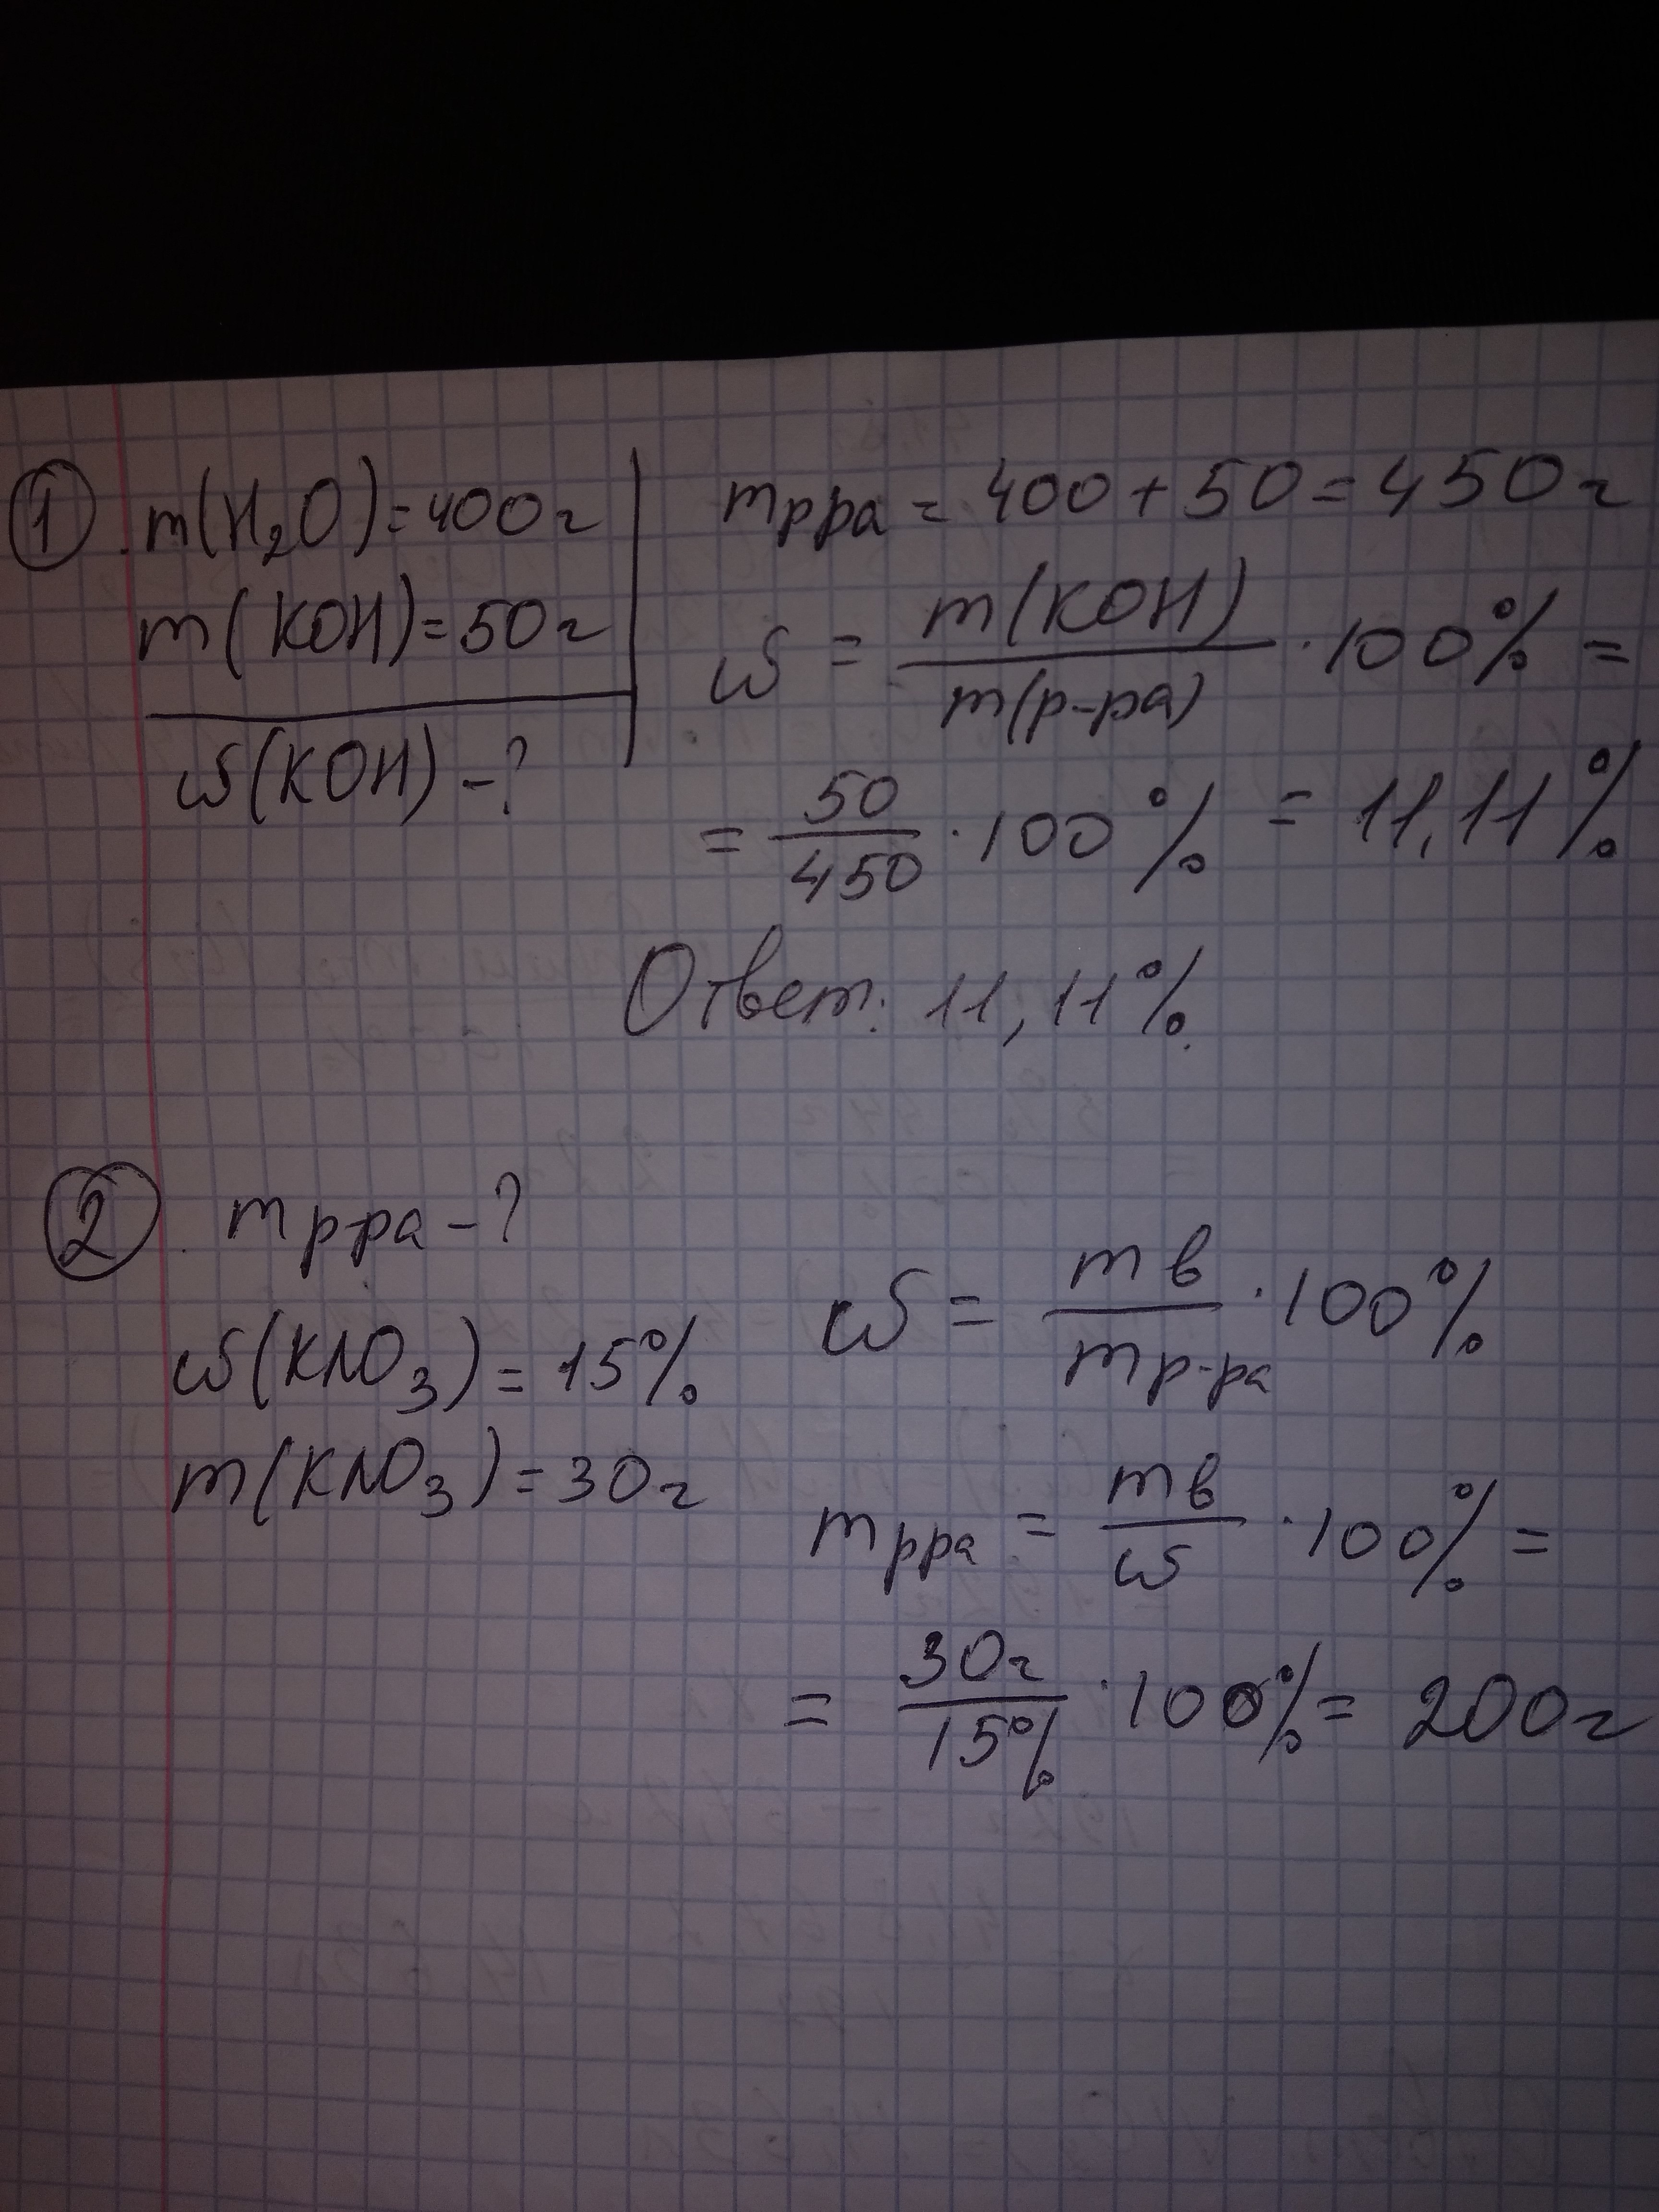 1 m(H₂O)=400г
m(KOH)=50г
ω(KOH)-?
mрра = 400+50=450г
ω = m(KOH)/m(р-ра) · 100% =
= 50/450 · 100% = 11,11%
Ответ: 11,11%.
2 mр-ра-?
ω(KNO₃)=15%
m(KNO₃)=30г
ω = mв/mр-ра · 100%
mрра = mв/ω · 100% =
= 30г/15% · 100% = 200г